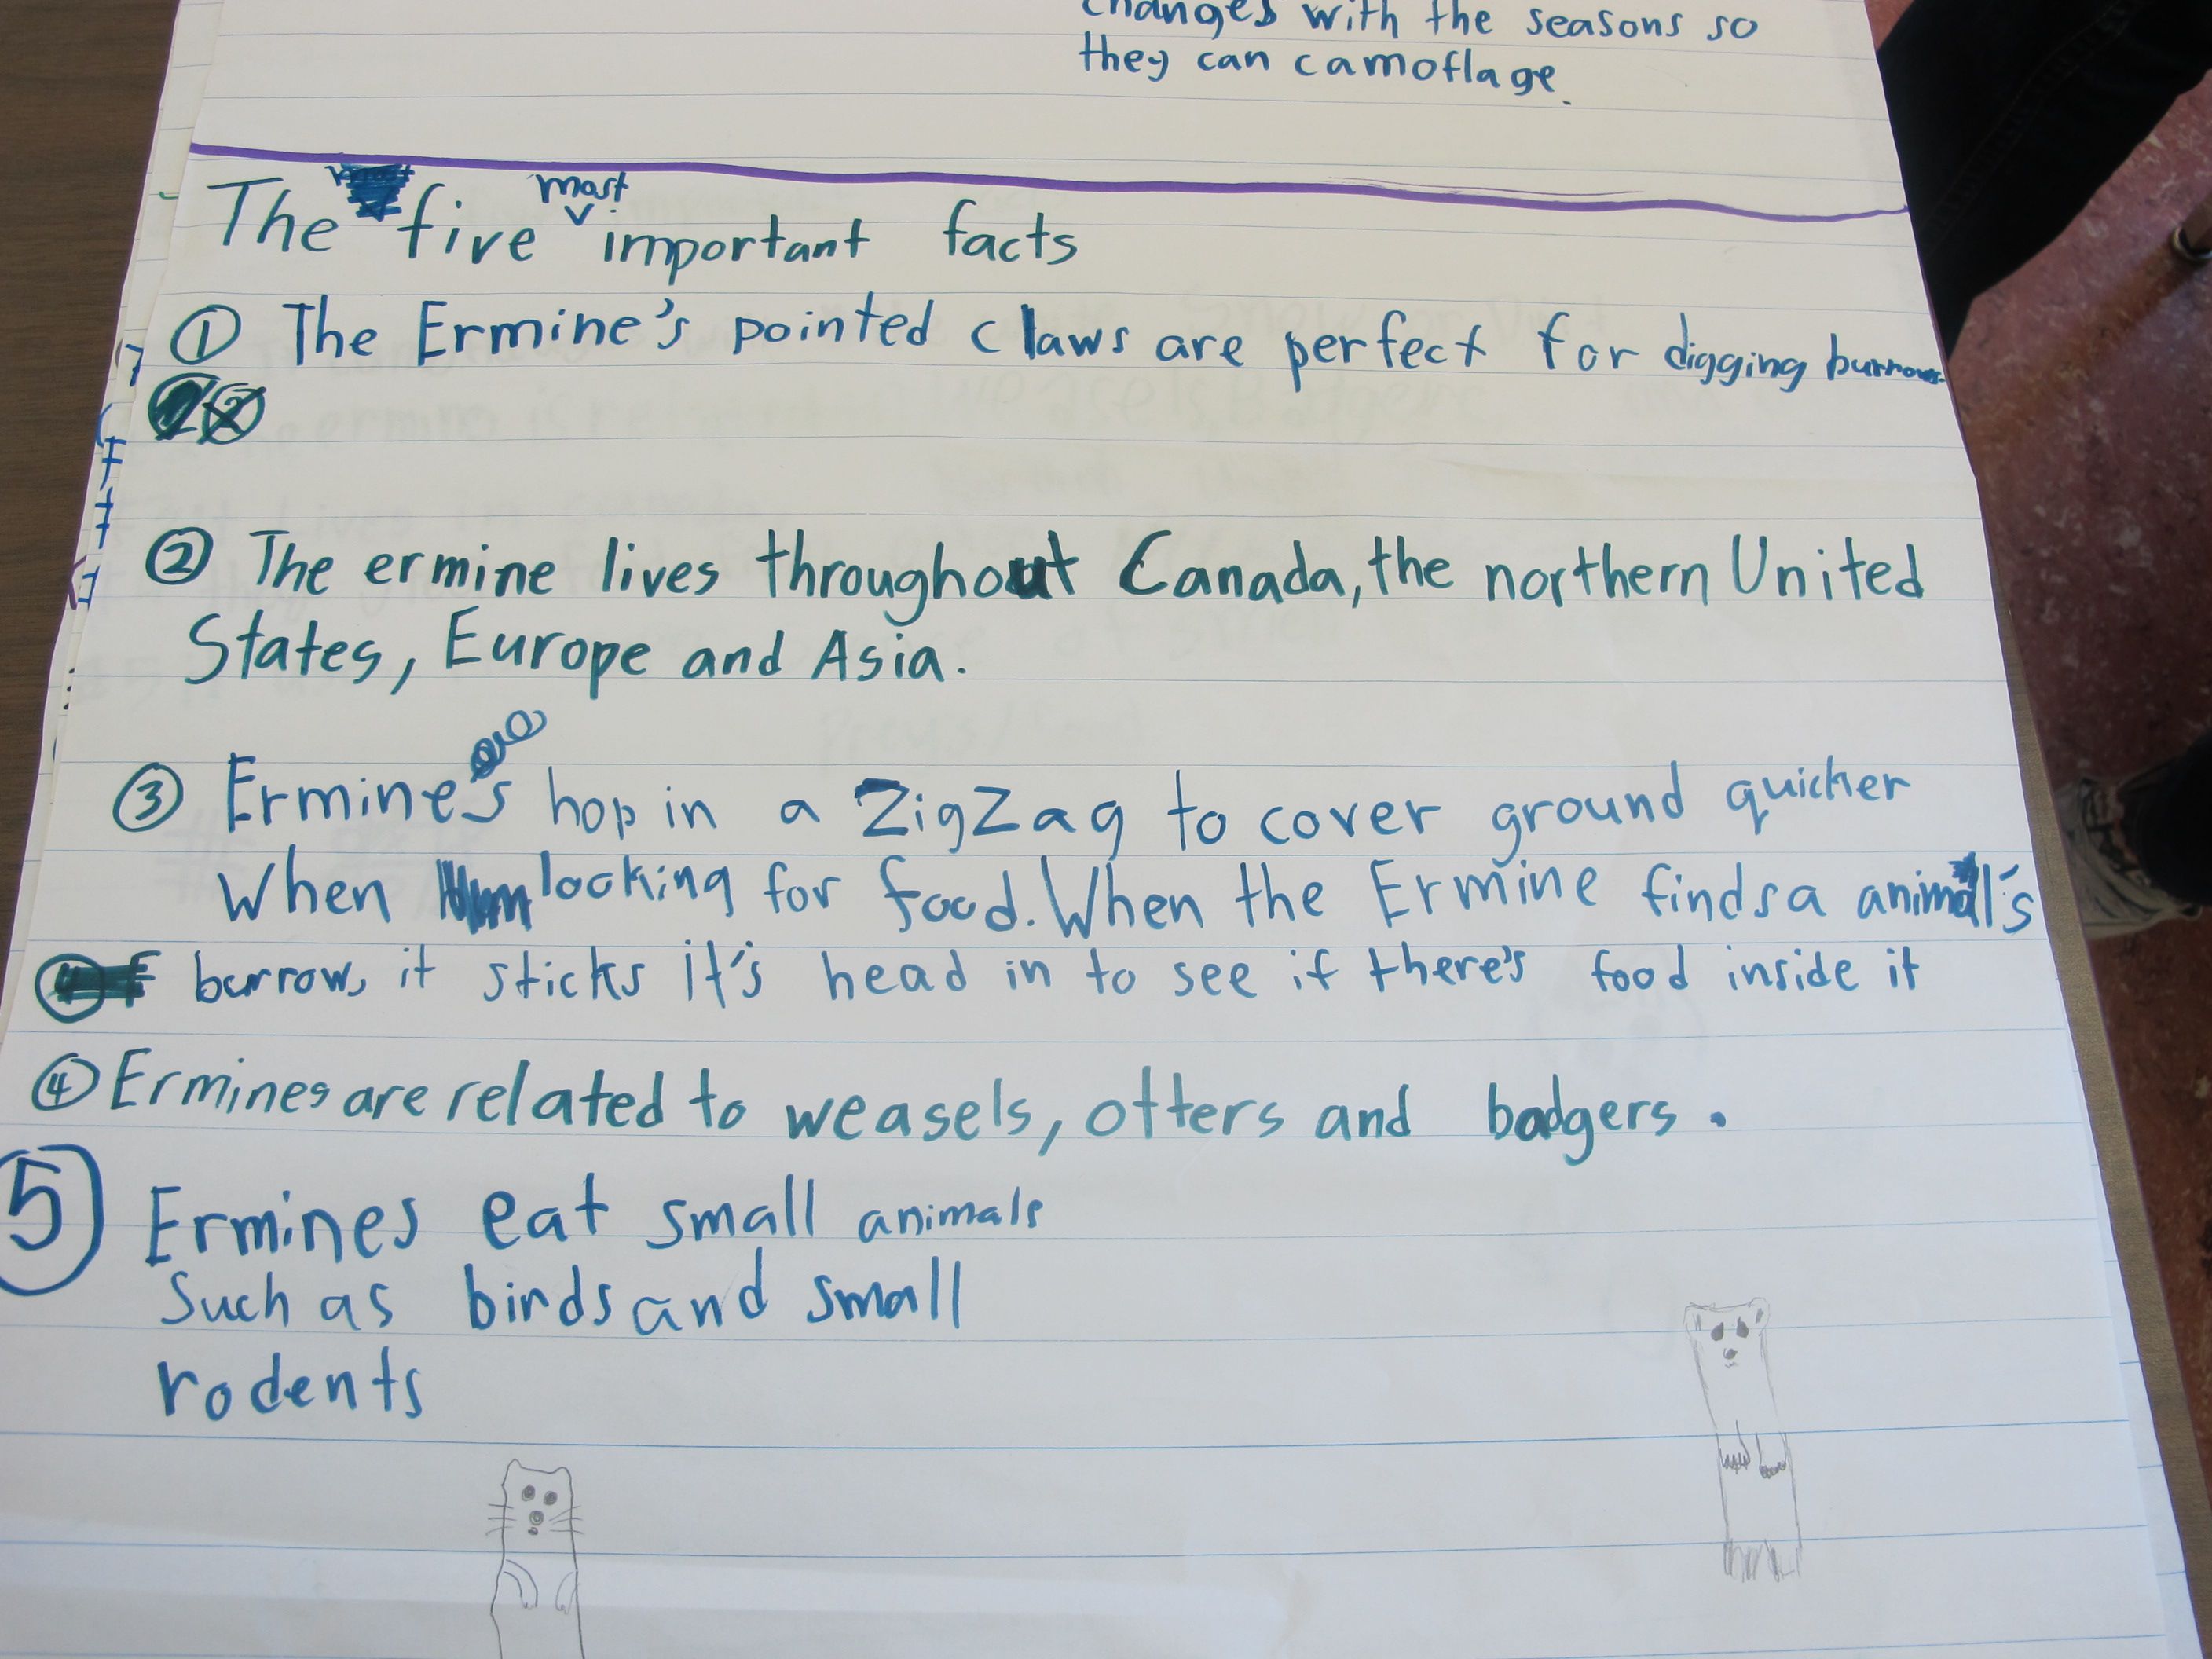 changes with the seasons so
they can camoflage.
The five most important facts
① The Ermine's pointed claws are perfect for digging burrows.
② The ermine lives throughout Canada, the northern United
States, Europe and Asia.
③ Ermine's hop in a ZigZag to cover ground quicker
When looking for food. When the Ermine finds a animal's
burrow, it sticks it's head in to see if there's food inside it
④ Ermines are related to weasels, otters and badgers.
5 Ermines eat small animals
Such as birds and small
rodents